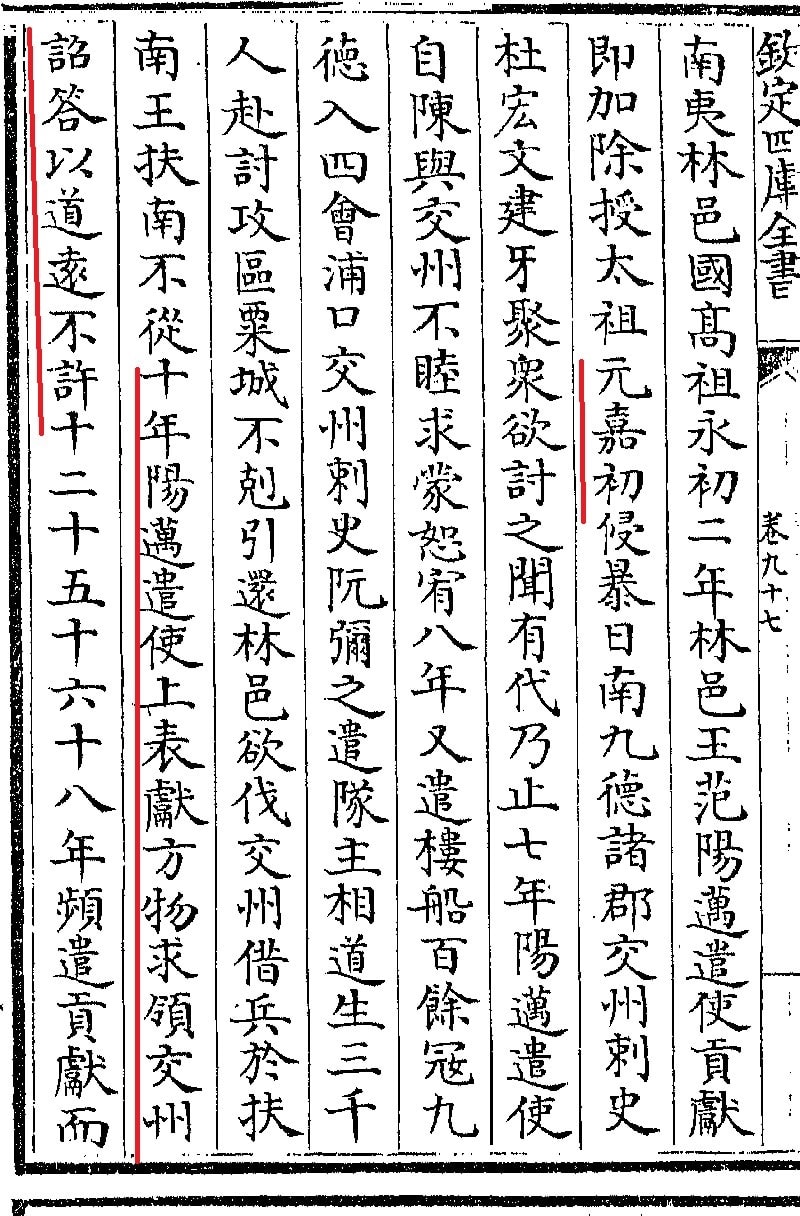 欽定四庫全書
卷九十七
南夷林邑國高祖永初二年林邑王范陽邁遣使貢獻
即加除授太祖元嘉初侵暴日南九德諸郡交州刺史
杜宏文建牙聚衆欲討之聞有代乃止七年陽邁遣使
自陳與交州不睦求蒙恕宥八年又遣樓船百餘寇九
德入四會浦口交州刺史阮彌之遣隊主相道生三千
人赴討攻區粟城不剋引還林邑欲伐交州借兵於扶
南王扶南不從十年陽邁遣使上表獻方物求領交州
詔答以道遠不許十二十五十六十八年頻遣貢獻而